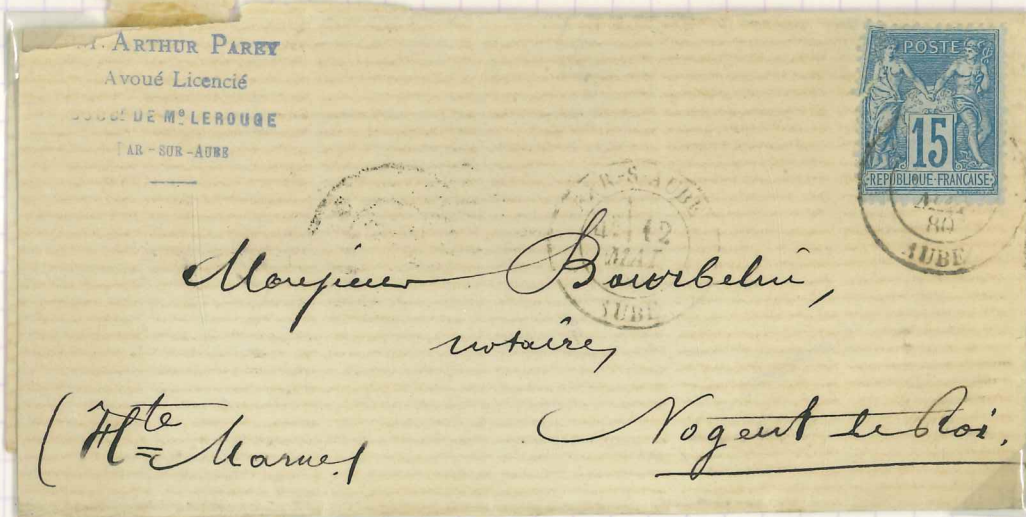 ARTHUR PAREY
Avoué Licencié
DE Mᵉ LEROUGE
BAR-SUR-AUBE
POSTE
15
REPUBLIQUE FRANCAISE
MAI
80
AUBE
BAR-S-AUBE
12
MAI
AUBE
Monsieur Bourbelin,
notaire,
Nogent le Roi.
(Hte Marne)